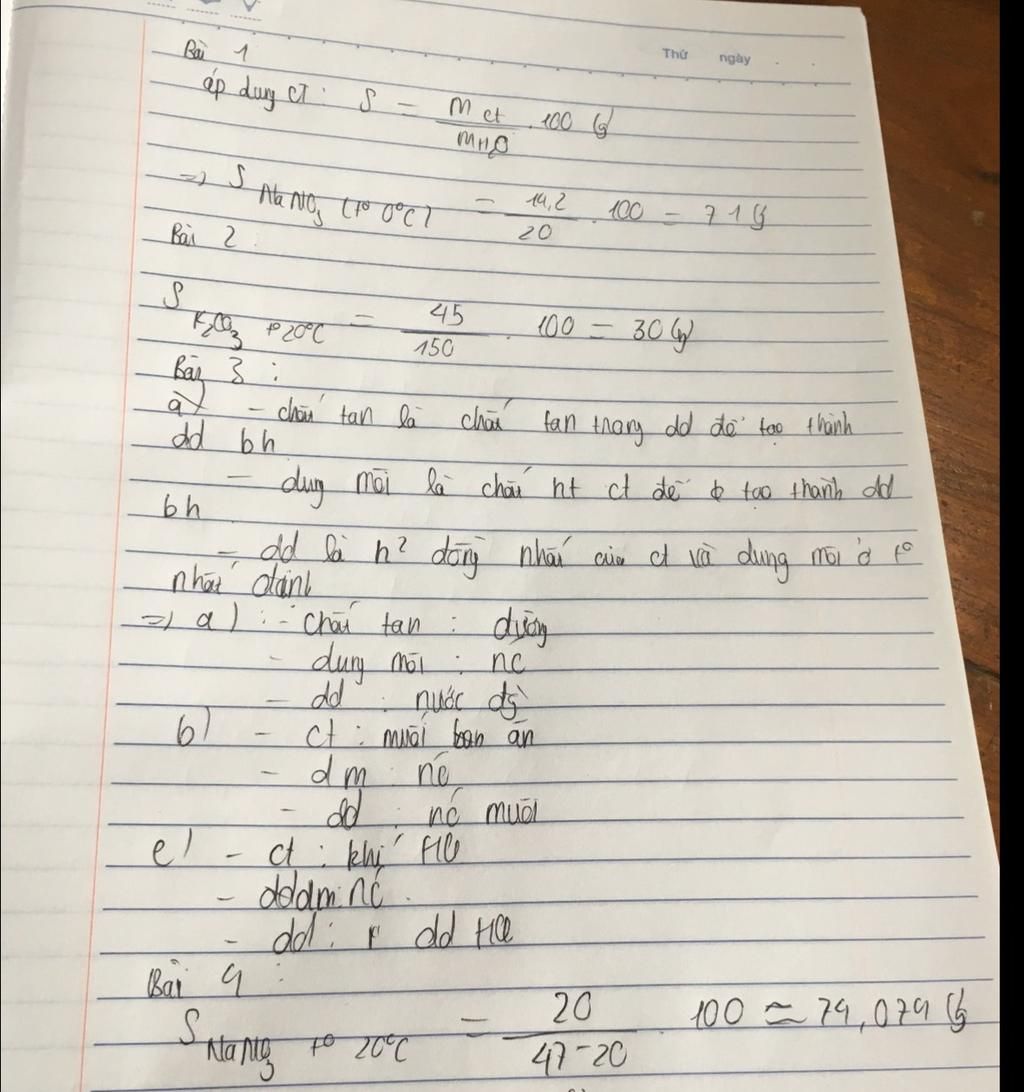 Thứ ngày
Bài 1
áp dụng CT: S = m ct / mH₂O . 100 (g)
=> S NaNO₃ (t° 0°C) = 14,2 / 20 . 100 = 71g
Bài 2
S K₂CO₃ t° 20°C = 45 / 150 . 100 = 30 (g)
Bài 3 :
a) - chất tan là chất tan trong dd để tạo thành
dd bh
- dung môi là chất ht ct để tạo thành dd
bh
- dd là h² đồng nhất của ct và dung môi ở t°
nhất định
=> a) : - chất tan : đường
- dung môi : nc
- dd : nước đg
b) - ct : muối ăn
- dm : nc
- dd : nc muối
c) - ct : khí HCl
- dm : nc
- dd : dd HCl
Bài 4 :
S NaNO₃ t° 20°C = 20 / 47-20 . 100 ≈ 74,074 (g)